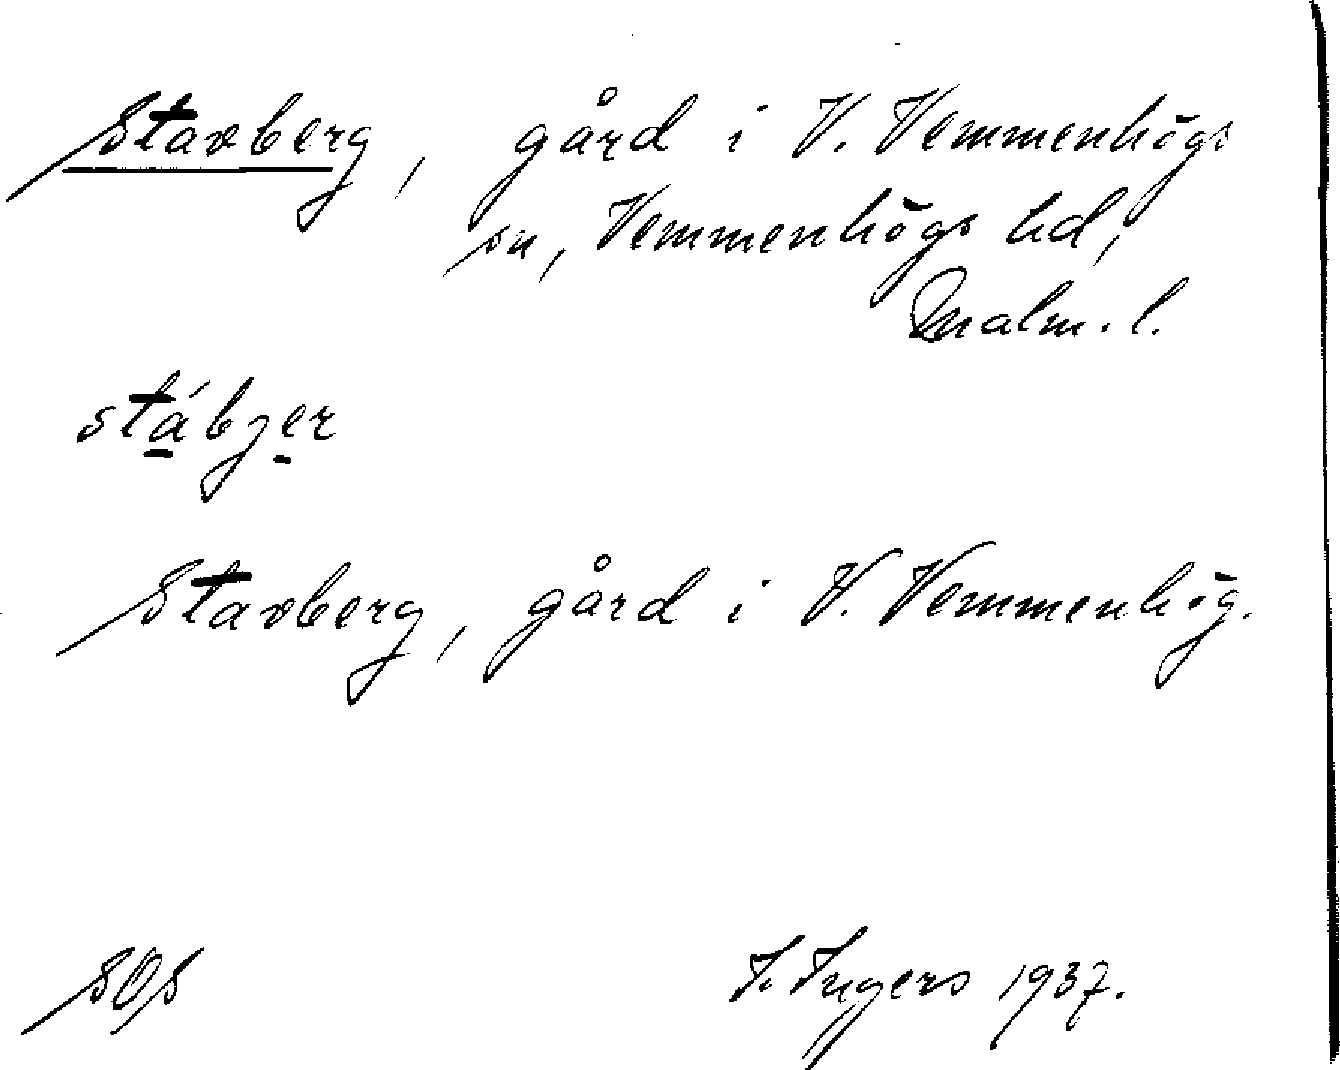 Stavberg, gård i V. Vemmenhögs
sn, Vemmenhögs hd,
Malm. l.
stábjer
Stavberg, gård i V. Vemmenhög.
SOS
I. Ingers 1937.